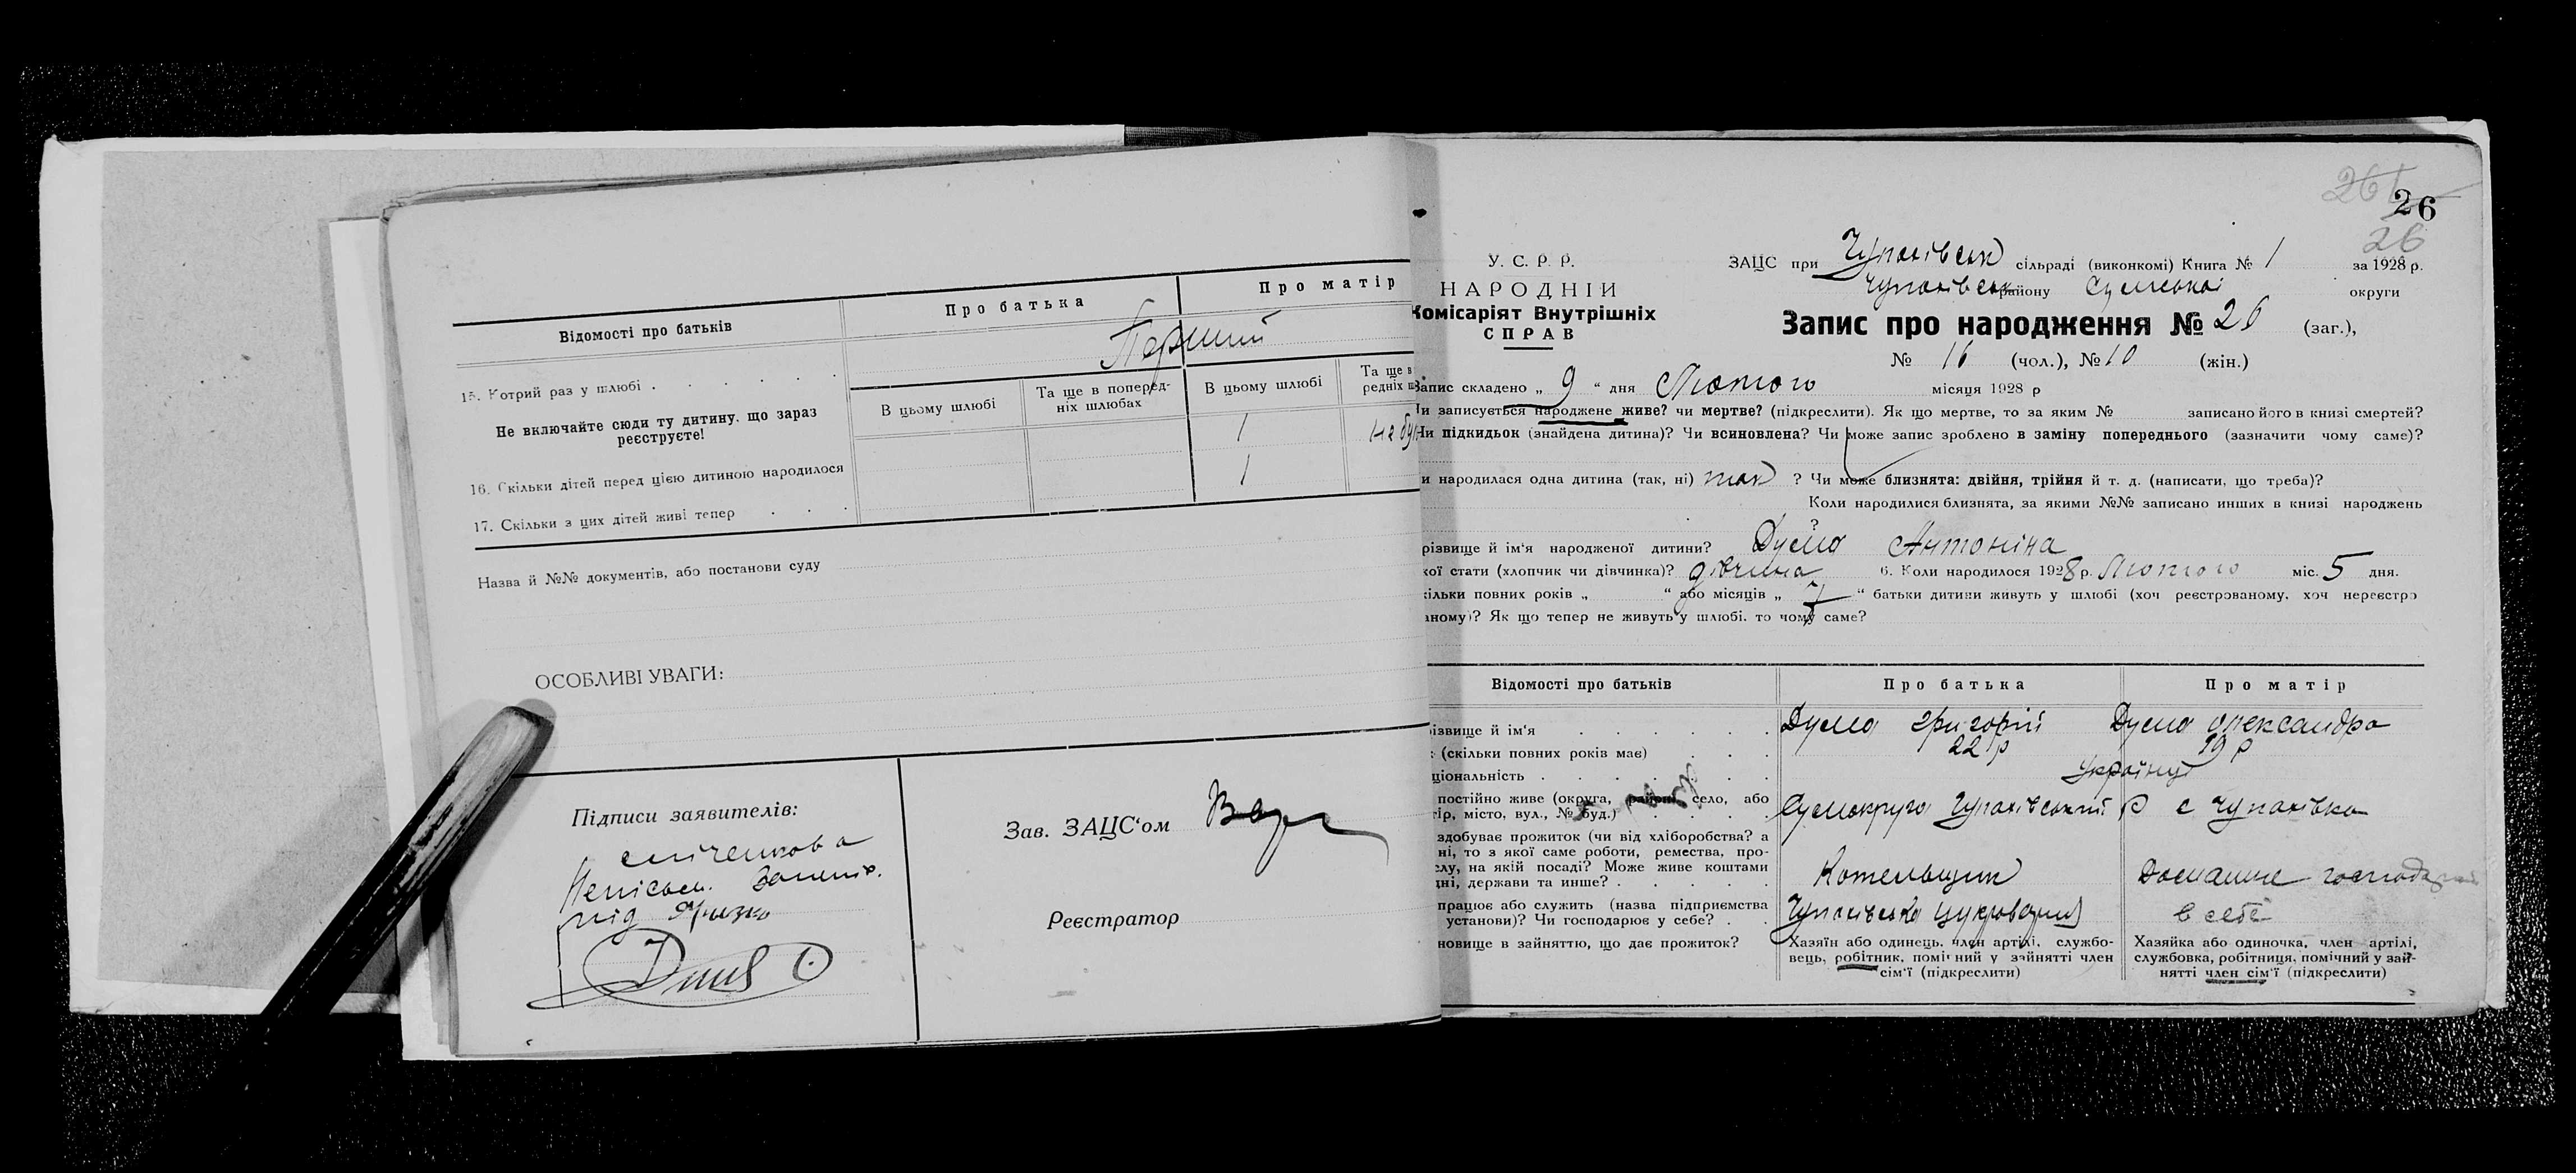 Відомості про батьків
Про батька
Про матір
15. Котрий раз у шлюбі
Перший
Не включайте сюди ту дитину, що зараз реєструєте!
В цьому шлюбі
Та ще в поперед-
ніх шлюбах
В цьому шлюбі
Та ще в
редніх ш
16. Скільки дітей перед цією дитиною народилося
1
не бу
17. Скільки з цих дітей живі тепер
1
Назва й №№ документів, або постанови суду
ОСОБЛИВІ УВАГИ:
Підписи заявителів:
Зав. ЗАЦС'ом
Реєстратор
261
26
26
У. С. Р. Р.
НАРОДНІЙ
Комісаріят Внутрішніх
СПРАВ
ЗАЦС при Чупахівськ сільраді (виконкомі) Книга № 1 за 1928 р.
Чупахівськ району Сумської округи
Запис про народження № 26 (заг.),
№ 16 (чол.), № 10 (жін.)
Запис складено „ 9 “ дня Лютого місяця 1928 р
Чи записується народжене живе? чи мертве? (підкреслити). Як що мертве, то за яким № записано його в книзі смертей?
Чи підкидьок (знайдена дитина)? Чи всиновлена? Чи може запис зроблено в заміну попереднього (зазначити чому саме)?
и народилася одна дитина (так, ні) так ? Чи може близнята: двійня, трійня й т. д. (написати, що треба)?
Коли народилися близнята, за якими №№ записано инших в книзі народжень
?
різвище й ім'я народженої дитини? Дума Антоніна
кої стати (хлопчик чи дівчинка)? дівчина 6. Коли народилося 1928 р. Лютого міс. 5 дня.
кільки повних років „ “ або місяців „ “ батьки дитини живуть у шлюбі (хоч реєстрованому, хоч нереєстро
аному)? Як що тепер не живуть у шлюбі, то чому саме?
Відомості про батьків
Про батька
Про матір
ізвище й ім'я
Дума Григорій
Дума Олександра
(скільки повних років має)
22 р
19 р
ціональність
Українці
постійно живе (округа, район, село, або
ір, місто, вул., № буд.)
Сумокруга Чупахівський Р с Чупахівка
здобуває прожиток (чи від хліборобства? а
ні, то з якої саме роботи, ремества, про-
слу, на якій посаді? Може живе коштами
дні, держави та инше?
Котельщик
Домашне господар
працює або служить (назва підприємства
установи)? Чи господарює у себе?
Чупахівська цукроварня
в себе
новище в зайняттю, що дає прожиток?
Хазяїн або одинець, член артілі, службо-
вець, робітник, помічний у зайнятті член
сім'ї (підкреслити)
Хазяйка або одиночка, член артілі,
службовка, робітниця, помічний у зай-
нятті член сім'ї (підкреслити)